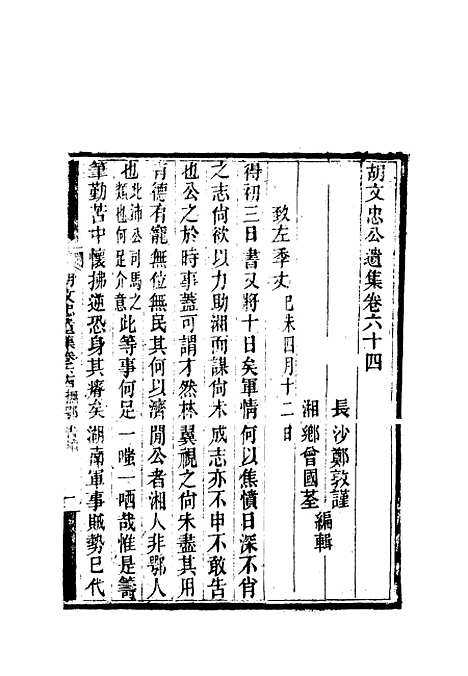 胡文忠公遺集卷六十四
長沙鄭敦謹
湘鄉曾國荃
編輯
致左季丈 己未四月十二日
得初三日書又將十日矣軍情何以焦憤日深不肖
之志尙欲以力助湘而謀尙未成志亦不申不敢告
也公之於時事蓋可謂才然林翼視之尙未盡其用
有德有寵無位無民其何以濟閒公者湘人非鄂人
也此沛公司馬之類也何足介意此等事何足一嗤一哂哉惟是籌
筆勤苦中懷拂逆恐身其瘠矣湖南軍事賊勢已代
胡文忠公遺集卷六十四 撫鄂 一